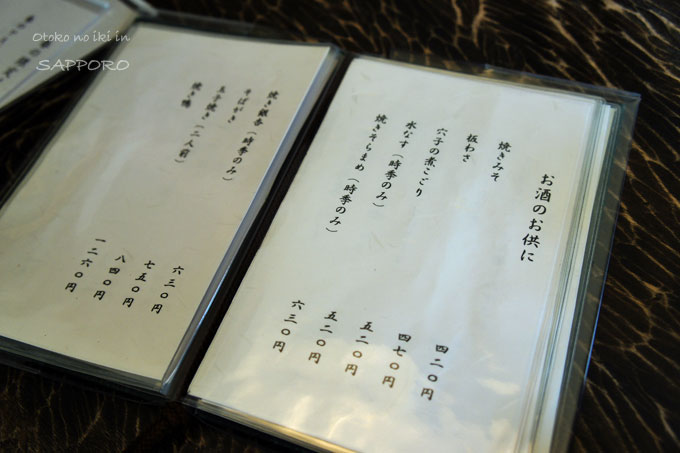 Otoko no iki in
SAPPORO
お酒のお供に
焼きみそ 四二〇円
板わさ 四七〇円
穴子の煮こごり 五二〇円
水なす（時季のみ） 五二〇円
焼きそらまめ（時季のみ） 六三〇円
焼き銀杏（時季のみ） 六三〇円
そばがき 七五〇円
玉子焼き（二人前） 八四〇円
焼き鴨 一二六〇円